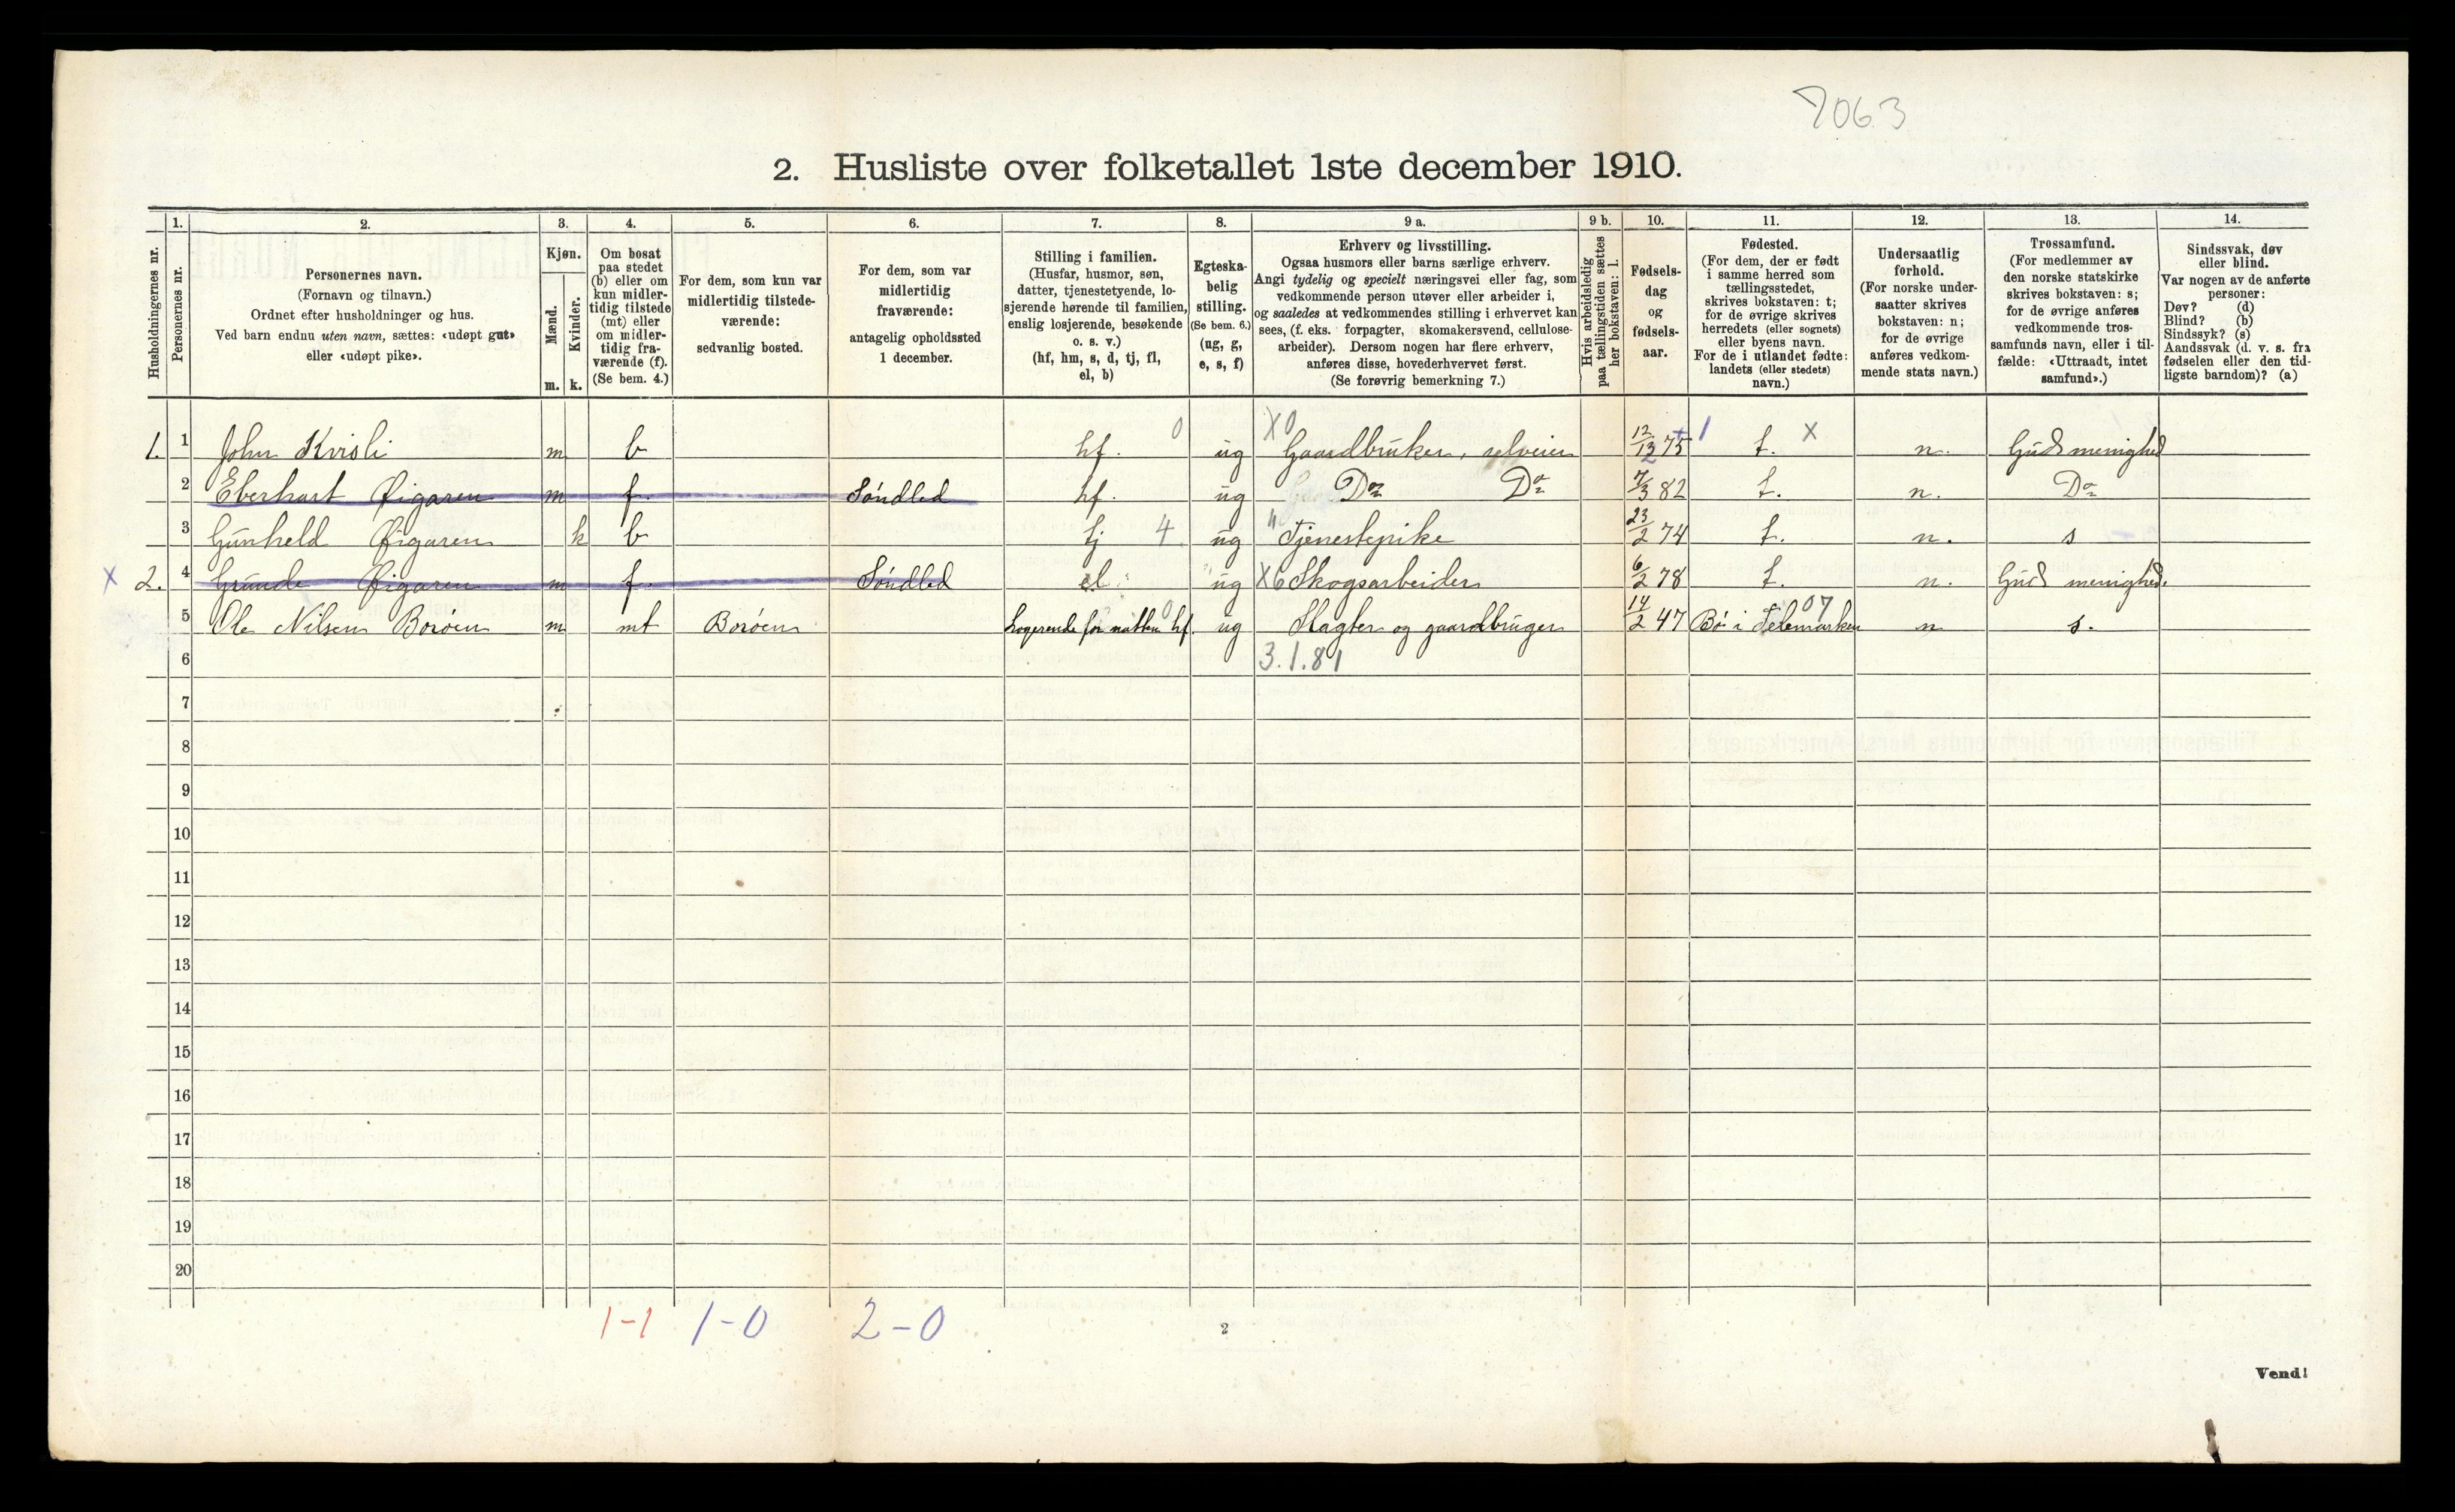 7063
2. Husliste over folketallet 1ste december 1910.
Husholdningernes nr.
1. Personernes nr.
2. Personernes navn. (Fornavn og tilnavn.) Ordnet efter husholdninger og hus. Ved barn endnu uten navn, sættes: «udøpt gut» eller «udøpt pike».
3. Kjøn. Mænd. m. Kvinder. k.
4. Om bosat paa stedet (b) eller om kun midlertidig tilstede (mt) eller om midlertidig fraværende (f). (Se bem. 4.)
5. For dem, som kun var midlertidig tilstedeværende: sedvanlig bosted.
6. For dem, som var midlertidig fraværende: antagelig opholdssted 1 december.
7. Stilling i familien. (Husfar, husmor, søn, datter, tjenestetyende, losjerende hørende til familien, enslig losjerende, besøkende o. s. v.) (hf, hm, s, d, tj, fl, el, b)
8. Egteskabelig stilling. (Se bem. 6.) (ug, g, e, s, f)
9 a. Erhverv og livsstilling. Ogsaa husmors eller barns særlige erhverv. Angi tydelig og specielt næringsvei eller fag, som vedkommende person utøver eller arbeider i, og saaledes at vedkommendes stilling i erhvervet kan sees, (f. eks. forpagter, skomakersvend, cellulosearbeider). Dersom nogen har flere erhverv, anføres disse, hovederhvervet først. (Se forøvrig bemerkning 7.)
9 b. Hvis arbeidsledig paa tællingstiden sættes her bokstaven: l.
10. Fødselsdag og fødselsaar.
11. Fødested. (For dem, der er født i samme herred som tællingsstedet, skrives bokstaven: t; for de øvrige skrives herredets (eller sognets) eller byens navn. For de i utlandet fødte: landets (eller stedets) navn.)
12. Undersaatlig forhold. (For norske undersaatter skrives bokstaven: n; for de øvrige anføres vedkommende stats navn.)
13. Trossamfund. (For medlemmer av den norske statskirke skrives bokstaven: s; for de øvrige anføres vedkommende trossamfunds navn, eller i tilfælde: «Uttraadt, intet samfund».)
14. Sindssvak, døv eller blind. Var nogen av de anførte personer: Døv? (d) Blind? (b) Sindssyk? (s) Aandssvak (d. v. s. fra fødselen eller den tidligste barndom)? (a)
1. 1 John Kvisli m b hf. 0 ug X0 Gaardbruker, selveier 12/12 75 1 t. X n. Guds menighed
2 Eberhart Øigaren m f. Söndled hf. ug Do Do 7/3 82 t. n. Do
3 Gunheld Øigaren k b tj 4 ug " Tjenestepike 23/2 74 t. n. s
X 2. 4 Grunde Øigaren m f. Söndled el ug X6 Skogsarbeider 6/2 78 t. n. Guds menighed.
5 Ole Nilsen Boröen m mt Boröen Logerende for natten hf. 0 ug Slagter og gaardbruger 14/2 47 Bö i Telemarken 07 n s.
6 3.1.81
7
8
9
10
11
12
13
14
15
16
17
18
19
20
1-1 1-0 2-0
2
Vend!